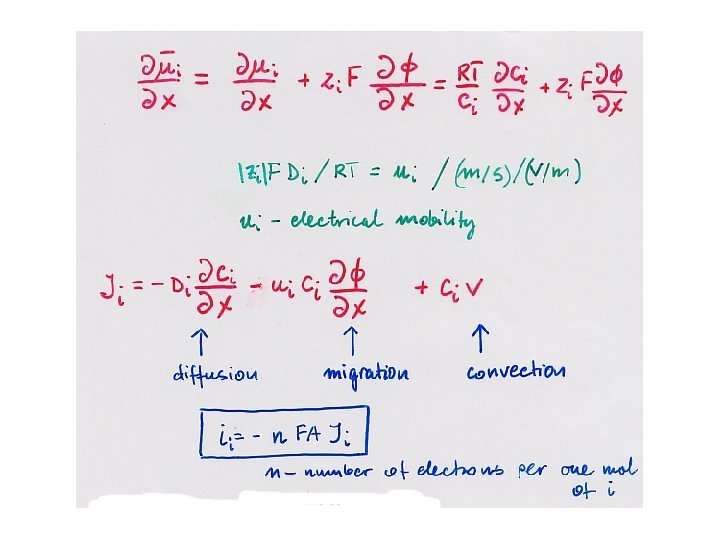 ∂μ̄ᵢ/∂x = ∂μᵢ/∂x + zᵢF ∂ϕ/∂x = RT/Cᵢ ∂Cᵢ/∂x + zᵢF ∂ϕ/∂x
|zᵢ|F Dᵢ / RT = uᵢ / (m/s)/(V/m)
uᵢ - electrical mobility
Jᵢ = - Dᵢ ∂Cᵢ/∂x - uᵢ Cᵢ ∂ϕ/∂x + Cᵢ V
↑ ↑ ↑
diffusion migration convection
iᵢ = - n FA Jᵢ
n - number of electrons per one mol
of i